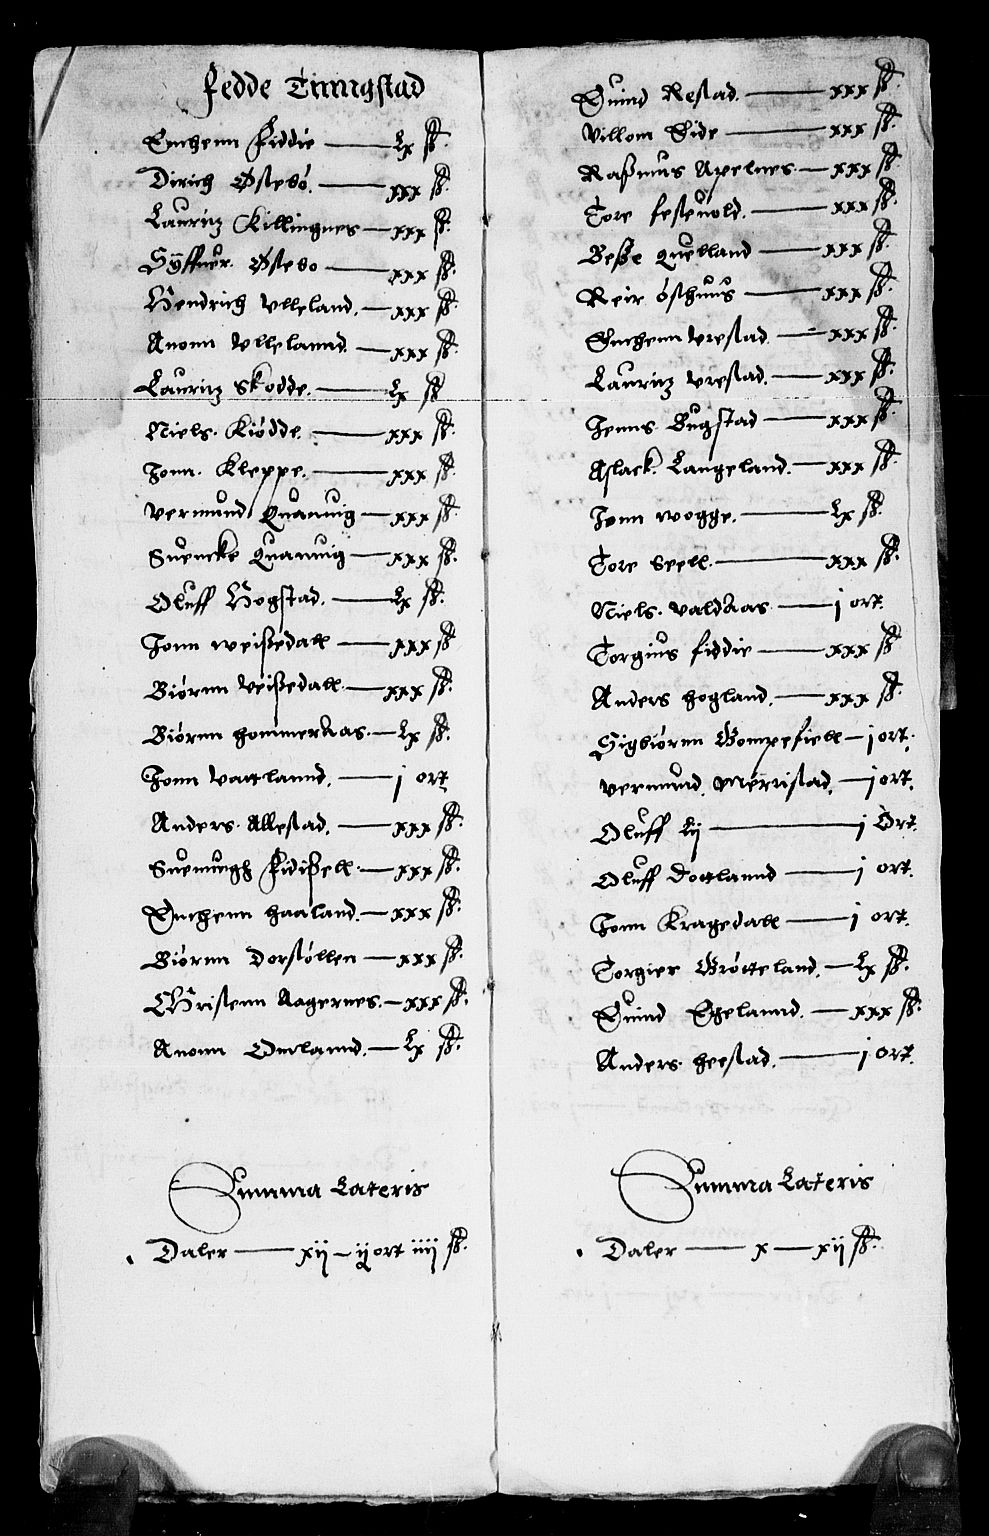 Fedde Tinngstad
Enchenn Fiddie — Lx ß.
Dirich Østebó. — xxx ß.
Lauritz Killingnes — xxx ß.
Syffuer. Østebo — xxx ß.
Hendrich Vlleland. — xxx ß.
Anonn Vllelannd. — xxx ß.
Lauritz Skodde. — Lx ß
Niels. Kiódde. — xxx ß.
Jonn. Kleppe. — xxx ß.
Vermund Quanuig — xxx ß.
Suencke Quanuig — xxx ß.
Oluff Hogstad. — Lx ß.
Jonn weißedall — xxx ß.
Biórnn Veißedall. — xxx ß.
Biórnn hommeraas. — Lx ß.
Jonn Vattlannd. — j ort
Anders. Allestad. — xxx ß.
Suenungh Fidißell. — xxx ß.
Enchenn haaland. — xxx ß.
Biórnn Dorstóllen — xxx ß.
Christenn Aagernes. — xxx ß.
Anonn Omlannd. — Lx ß.
Summa Lateris
Daler — xij — ij ort iiij ß.
Suind Restad. — xxx ß.
Villom Eide — xxx ß.
Raßmus Apelnes — xxx ß.
Tore festuold. — xxx ß.
Beße Quelland — xxx ß.
Reir ósthuus — xxx ß.
Enchenn Vrestad — xxx ß.
Lauritz Vrestad. — xxx ß.
Jenns Bugstad — xxx ß
Aslack. Langeland. — xxx ß.
Jonn wogge. — Lx ß.
Tore Uell. — xxx ß.
Niels. Valdaas — j ort.
Torgius fiddie — xxx ß
Anders hogland. — xxx ß.
Sigbiórnn Gompefiell — j ort.
Vermund. Merristad. — j ort.
Oluff Lij — j Ort.
Oluff Dottlannd — j ort.
Jonn Kragedall — j ort.
Torgier Grótteland. — Lx ß.
Suind Egelannd. — xxx ß.
Anders. heestad. — j ort.
Summa Lateris
Daler — x — xij ß.